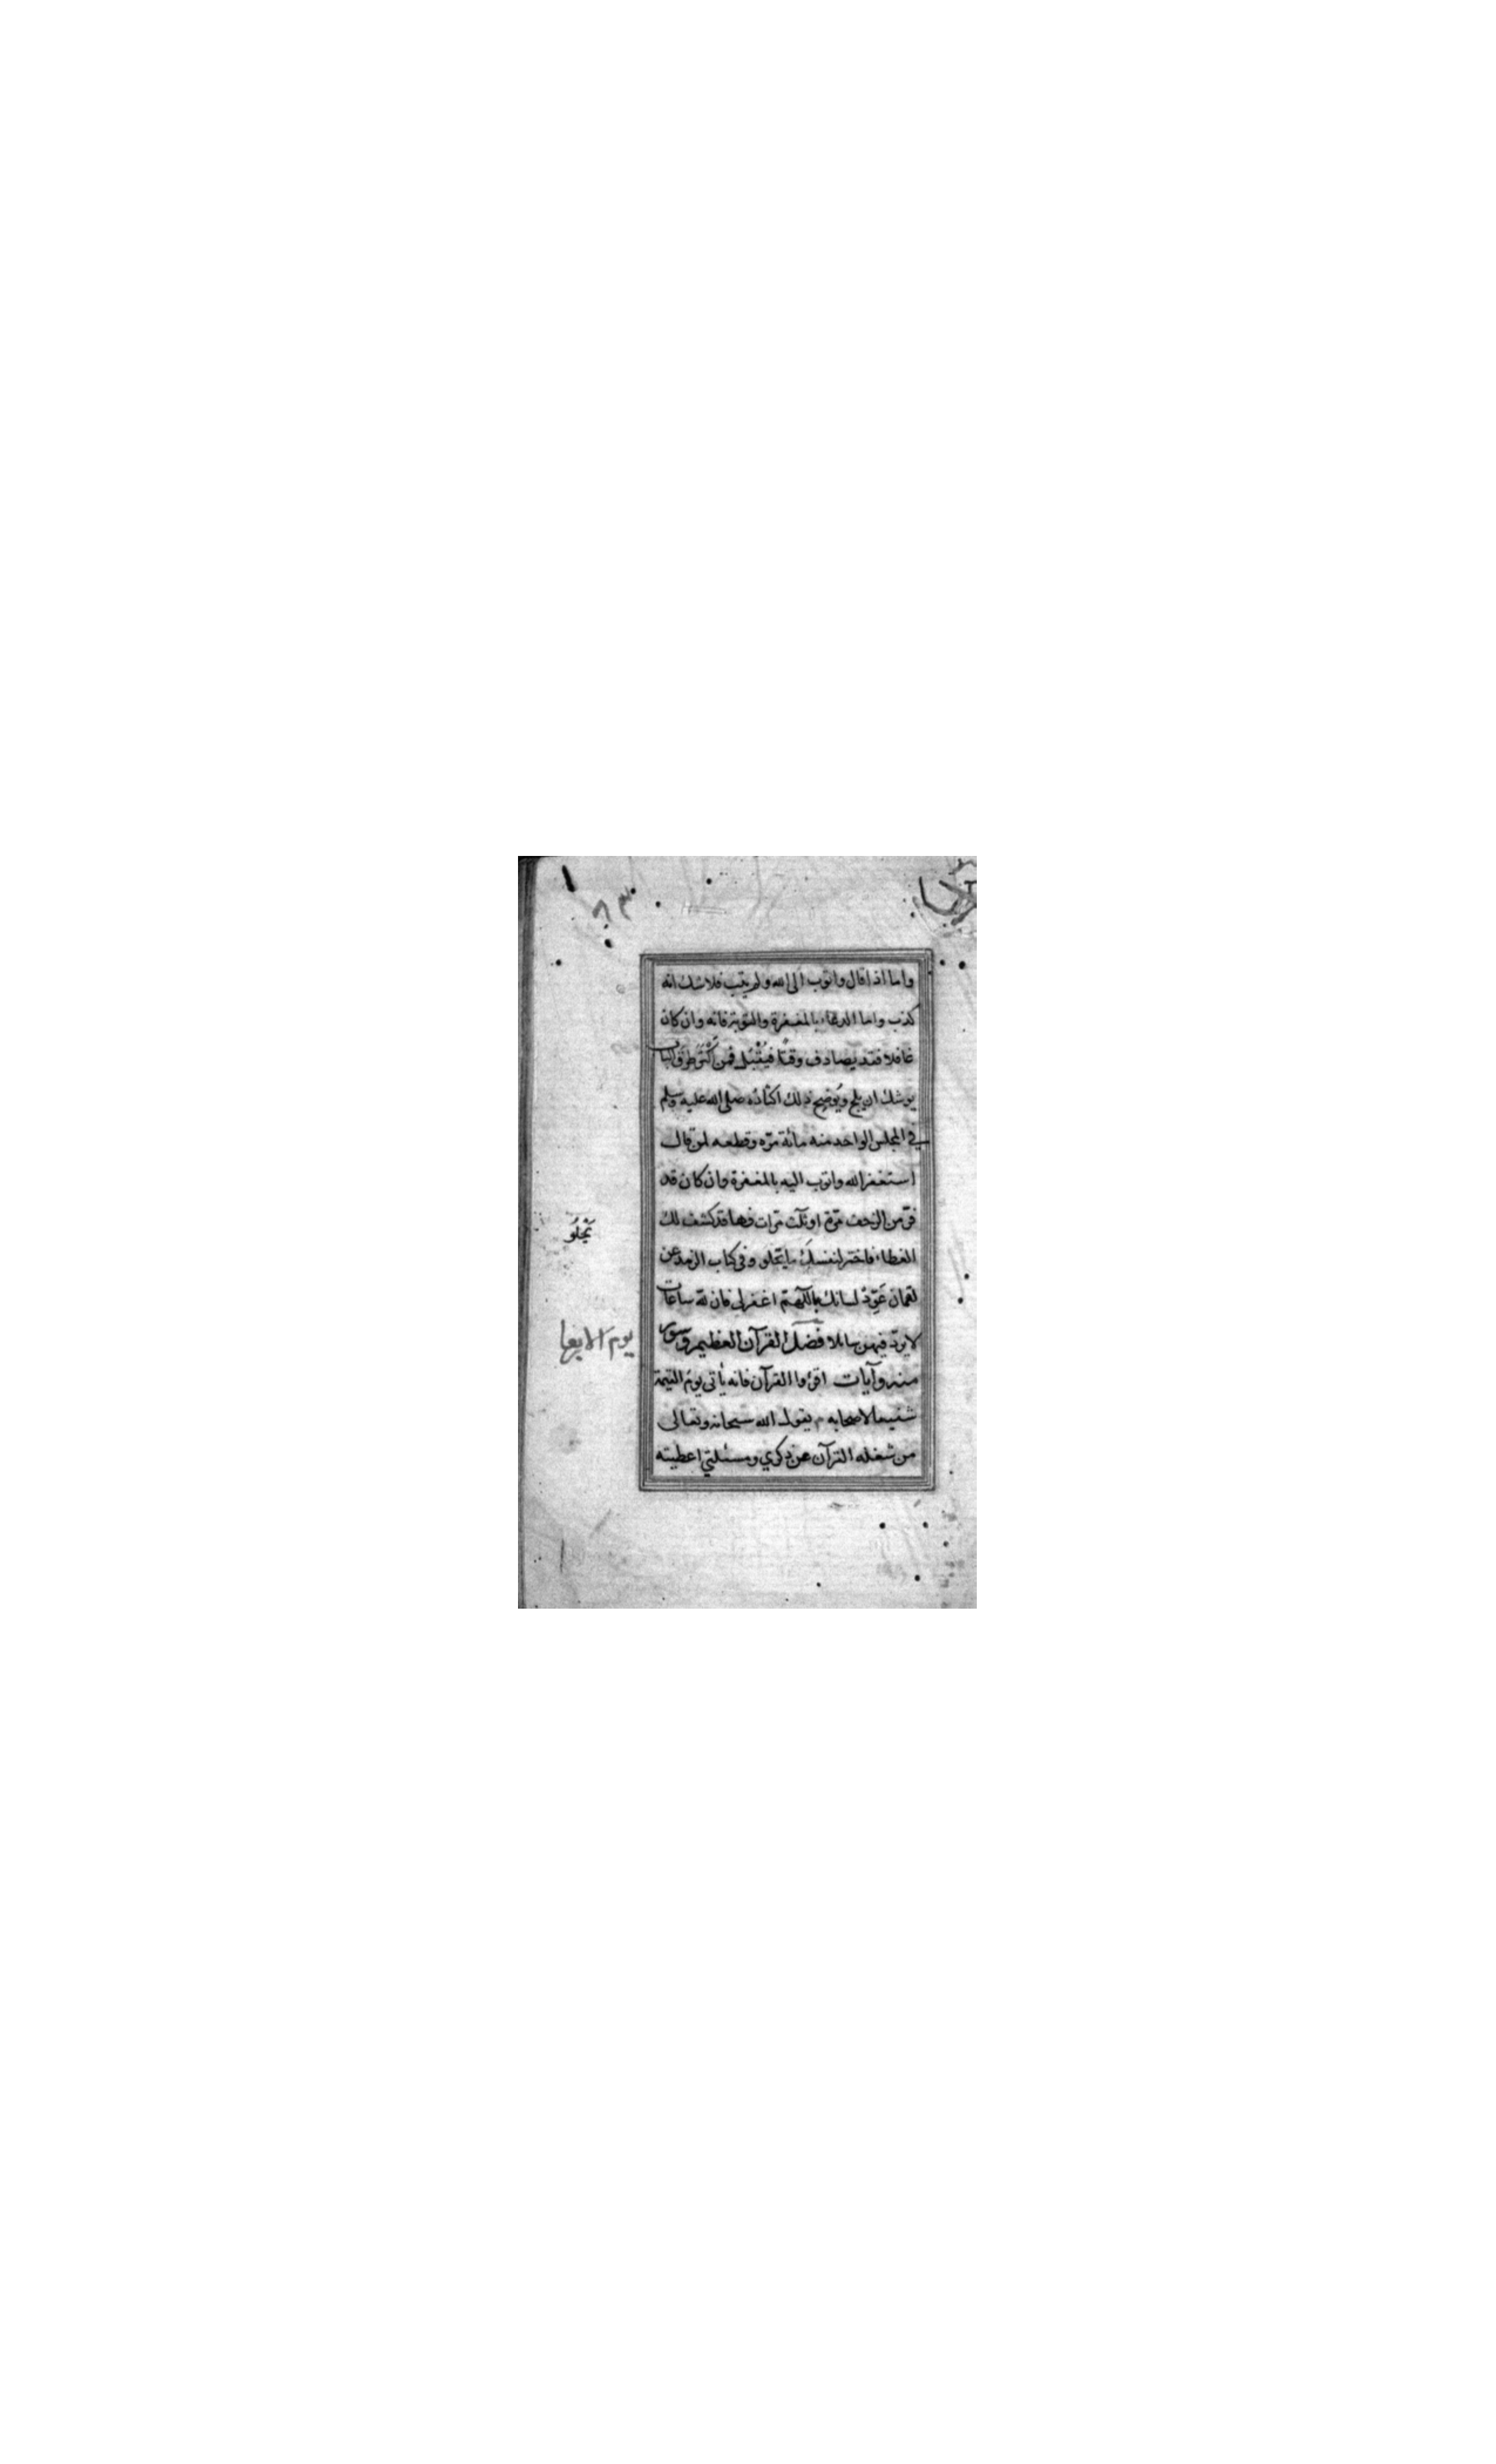 واما اذا قال واتوب الى الله ولم يتب فلا شك انه
كذب واما الدعاء بالمغفرة والتوبة فانه وان كان
غافلا فقد يصادف وقتًا فيُقْبَل فمن اكْثَرَ طَرْقَ الباب
يوشك ان يلج ويُوضح ذلك اكثاره صلى الله عليه وسلم
في المجلس الواحد منه مائة مرّه وقطعه لمن قال
استغفر الله واتوب اليه بالمغفرة وان كان قد
فرّ من الزحف مرّة او ثلث مرّات فها قد كشف لك
الغطاء فاختر لنفسكَ ما يحلو وفى كتاب الزهد عن
لقمان عَوِّدْ لسانك باللّهمّ اغفر لى فان لله ساعات
لا يردّ فيهن سائلا فضل القرآن العظيم وسور
منه وآيات اقرءوا القرآن فانه يأتى يوم القيمة
شفيعا لاصحابه م يقول الله سبحانه وتعالى
من شغله القرآن عن ذكري ومسئلتي اعطيته
يَحْلُو
يوم الاربعا